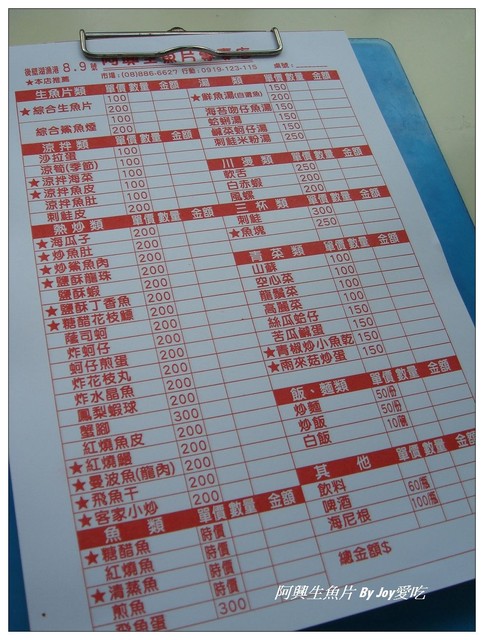 後壁湖漁港 8.9號 阿興生魚片
★本店推薦 市場:(08)886-6627 行動:0919-123-115 桌號:
生魚片類 單價 數量 金額
★綜合生魚片 100
200
綜合鯊魚煙 100
200
涼拌類 單價 數量 金額
沙拉蛋 100
涼筍(季節) 100
★涼拌海菜 100
★涼拌魚皮 100
涼拌魚肚 100
刺鮭皮 200
熱炒類 單價 數量 金額
★海瓜子 200
★炒魚肚 200
★炒鯊魚肉 200
★鹽酥龍珠 200
鹽酥蝦 200
★鹽酥丁香魚 200
★糖醋花枝鰾 200
薩司蚵 200
炸蚵仔 200
蚵仔煎蛋 200
炸花枝丸 200
炸水晶魚 200
鳳梨蝦球 300
蟹腳 200
紅燒魚皮 200
★紅燒鰻 200
★曼波魚(龍肉) 200
★飛魚干 200
★客家小炒 200
魚類 單價 數量 金額
★糖醋魚 時價
紅燒魚 時價
★清蒸魚 時價
煎魚 時價
飛魚蛋 300
湯類 單價 數量 金額
★鮮魚湯(自選魚) 150
200
海菩吻仔魚湯 150
蛤蜊湯 150
鹹菜蚵仔湯 200
刺鮭米粉湯 250
川燙類 單價 數量 金額
軟舌 250
白赤蝦 200
風螺 200
三杯類 單價 數量 金額
刺鮭 300
★魚塊 250
青菜類 單價 數量 金額
山蘇 100
空心菜 100
龍鬚菜 100
高麗菜 100
絲瓜蛤仔 150
苦瓜鹹蛋 150
★青椒炒小魚乾 150
★雨來菇炒蛋 150
飯、麵類 單價 數量 金額
炒麵 50/份
炒飯 50/份
白飯 10/碗
其他 單價 數量 金額
飲料 60/瓶
啤酒 100/瓶
海尼根
總金額$
阿興生魚片 By Joy愛吃